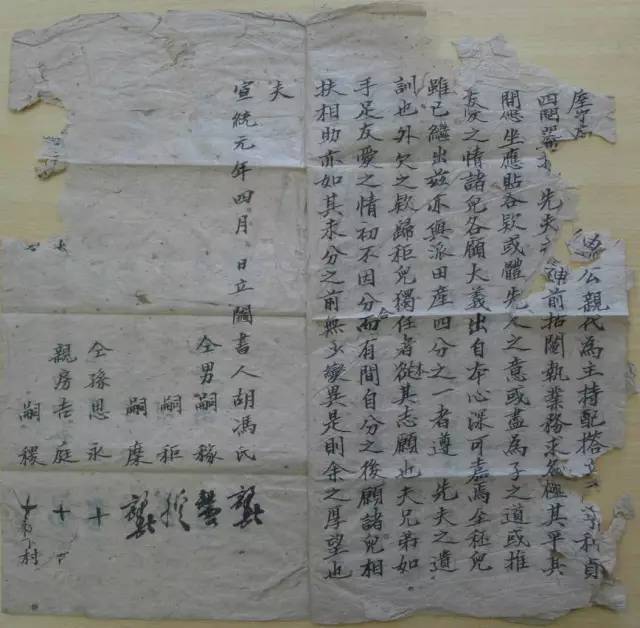 公親代為主持配搭 利貞
四鬮 先夫 神前拈鬮執業務求 極其平其
間應坐應貼各欵或體先人之意或盡為子之道或推
友愛之情諸兒各顧大義出自本心深可嘉焉至秬兒
雖已繼出茲亦與派田產四分之一者遵 先夫之遺
訓也外欠之欵歸秬兒獨任者從其志願也夫兄弟如
手足友愛之情初不因分而有間自分之後願諸兒相
扶相助亦如其未分之前無少變異是則余之厚望也
夫
宣統元年四月 日立鬮書人胡馮氏
仝男嗣稼
嗣秬
嗣穈
仝孫思永 十
親房吉庭 十
嗣稷 十 村